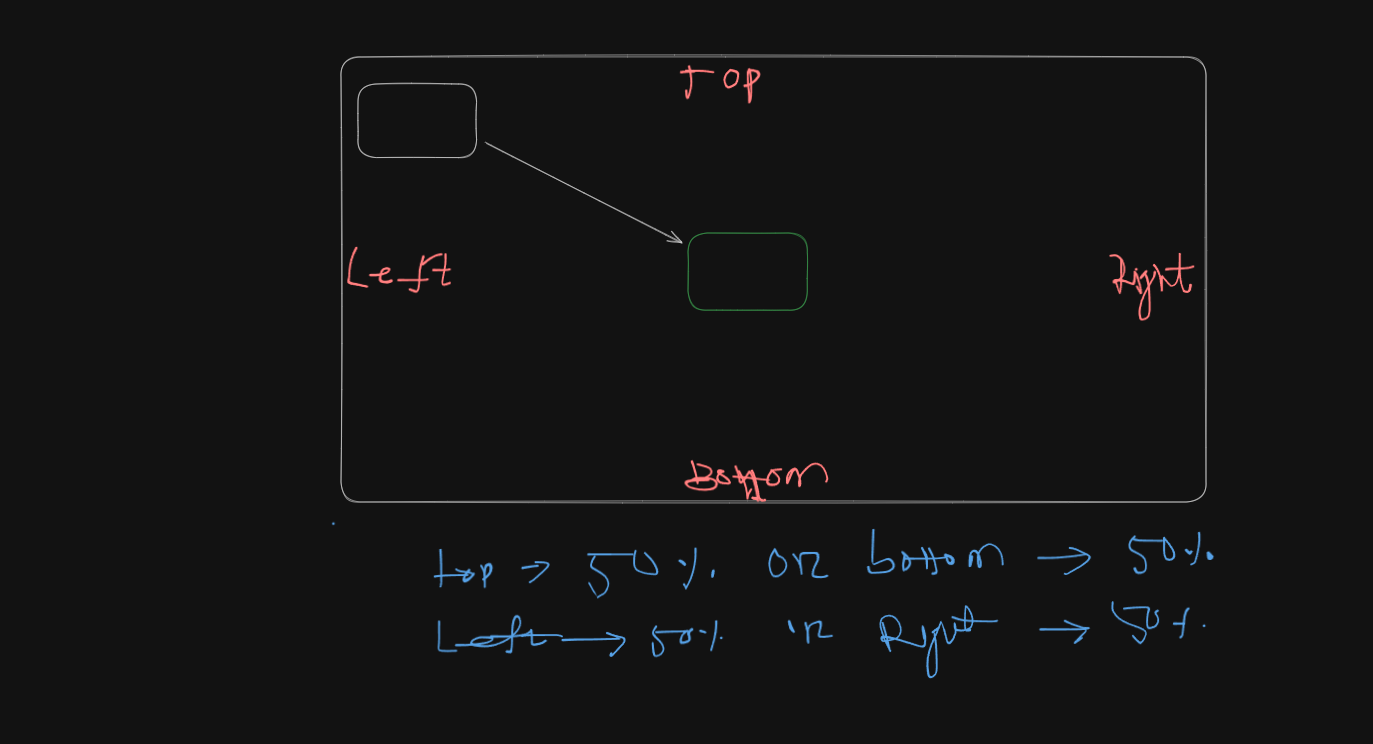 Top
Left
Right
Bottom
top → 50%. or bottom → 50%.
Left → 50% or Right → 50%.